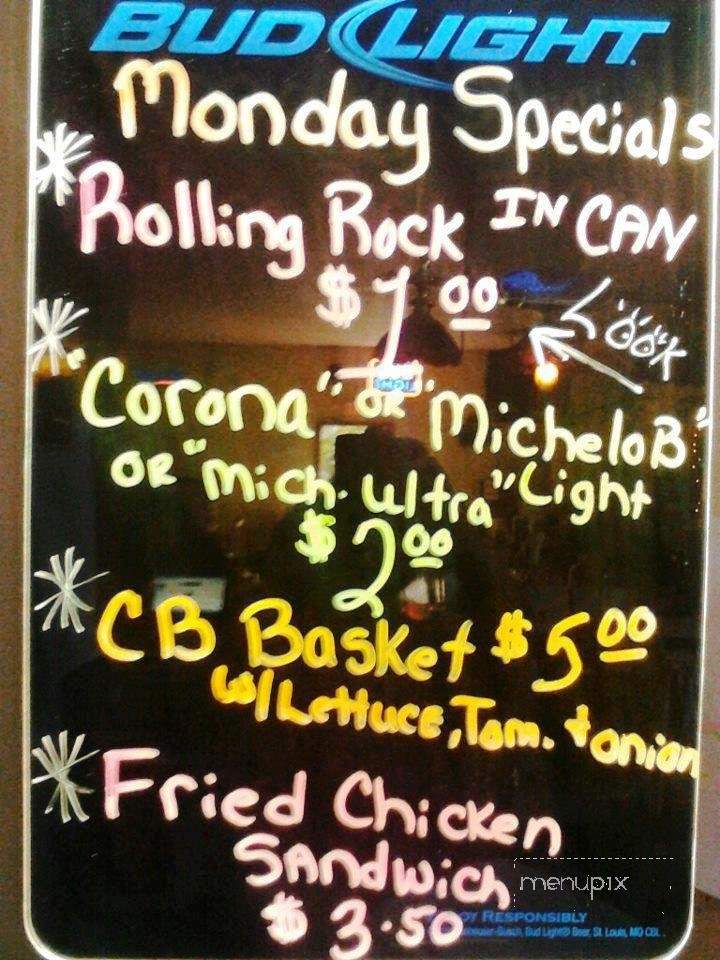 BUD LIGHT
Monday Specials
Rolling Rock IN CAN
$1.00
Look
"Corona" OR "MicheloB"
OR "Mich. Ultra" Light
$2.00
CB Basket $5.00
w/Lettuce, Tom. + onion
Fried Chicken
SANdwich
$3.50
menupix
RESPONSIBLY
Bud Light® Beer, St. Louis, MO